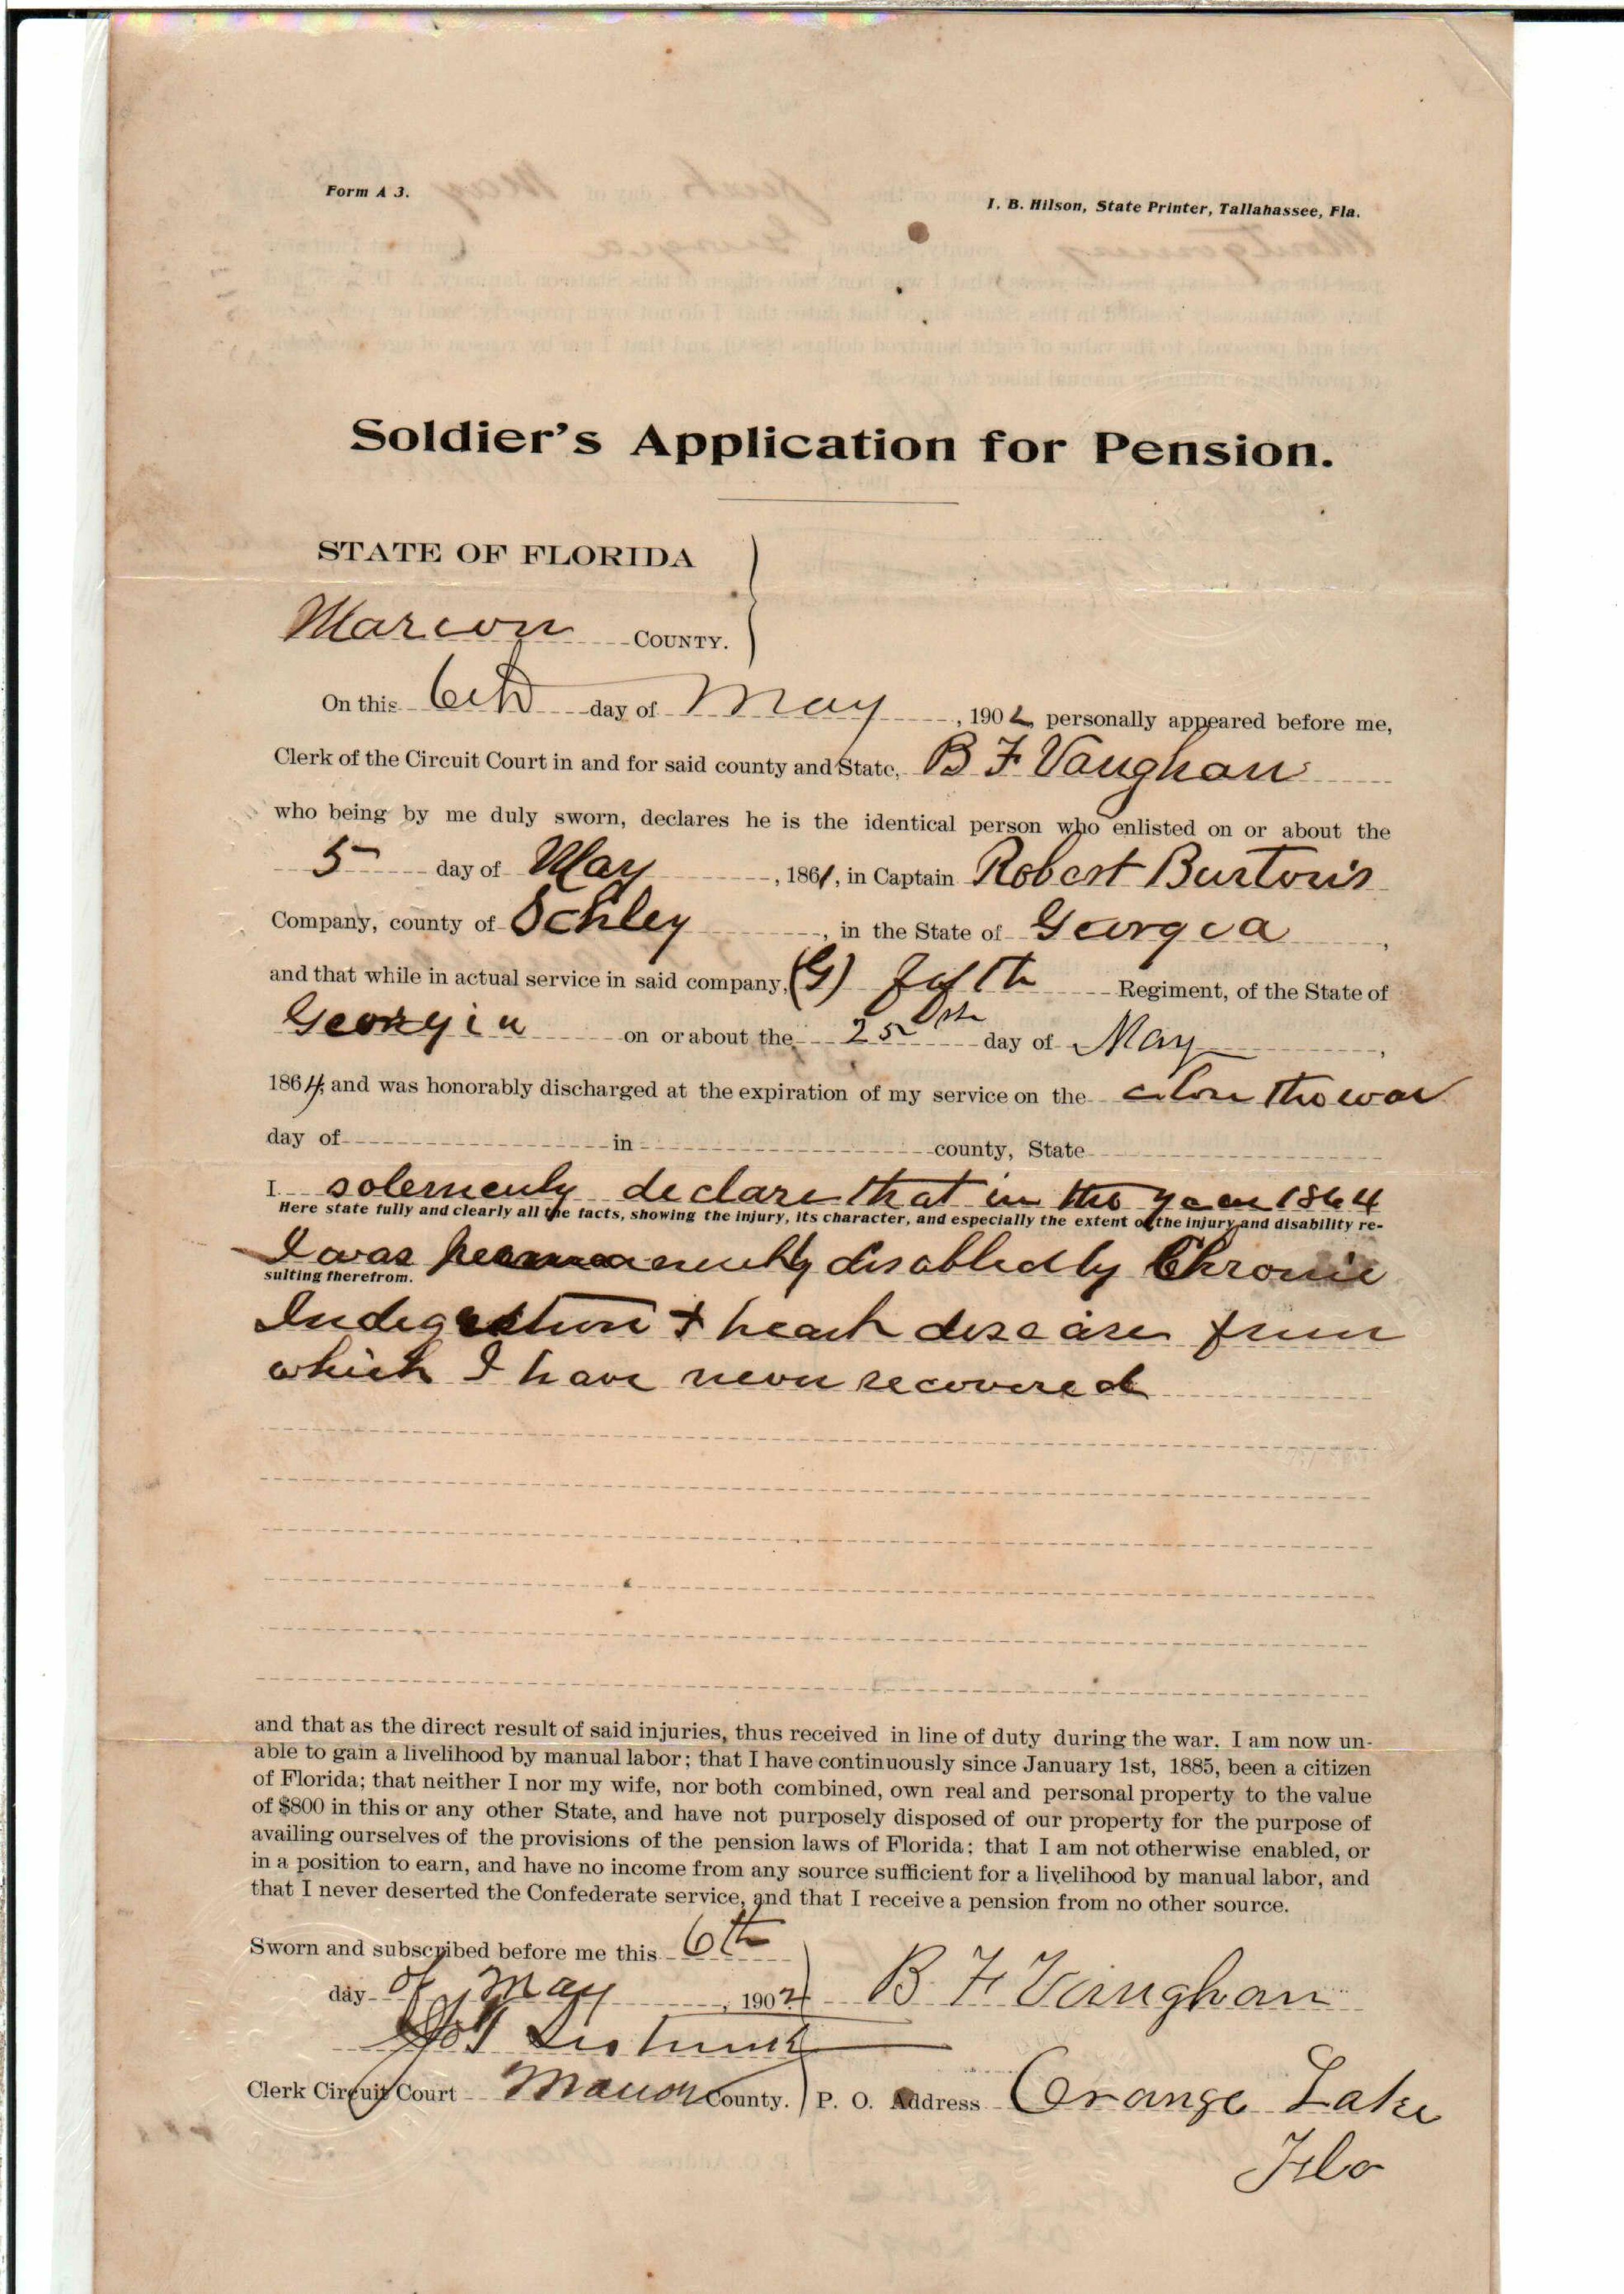 Form A 3.
I. B. Hilson, State Printer, Tallahassee, Fla.
Soldier's Application for Pension.
STATE OF FLORIDA
Marion COUNTY.
On this 6th day of May, 1902, personally appeared before me,
Clerk of the Circuit Court in and for said county and State, B F Vaughan
who being by me duly sworn, declares he is the identical person who enlisted on or about the
5 day of May, 1861, in Captain Robert Burton's
Company, county of Schley, in the State of Georgia,
and that while in actual service in said company, (G) fifth Regiment, of the State of
Georgia on or about the 25th day of May,
1864, and was honorably discharged at the expiration of my service on the close the war
day of in county, State
I solemenly declare that in the year 1864
Here state fully and clearly all the facts, showing the injury, its character, and especially the extent of the injury and disability re-
I was permanently disabled by Chronic
sulting therefrom.
Indigestion & heart disease from
which I have never recovered
and that as the direct result of said injuries, thus received in line of duty during the war. I am now un-
able to gain a livelihood by manual labor; that I have continuously since January 1st, 1885, been a citizen
of Florida; that neither I nor my wife, nor both combined, own real and personal property to the value
of $800 in this or any other State, and have not purposely disposed of our property for the purpose of
availing ourselves of the provisions of the pension laws of Florida; that I am not otherwise enabled, or
in a position to earn, and have no income from any source sufficient for a livelihood by manual labor, and
that I never deserted the Confederate service, and that I receive a pension from no other source.
Sworn and subscribed before me this 6th
day of May, 1902 B. F Vaughan
Clerk Circuit Court Marion County. P. O. Address Orange Lake
Fla